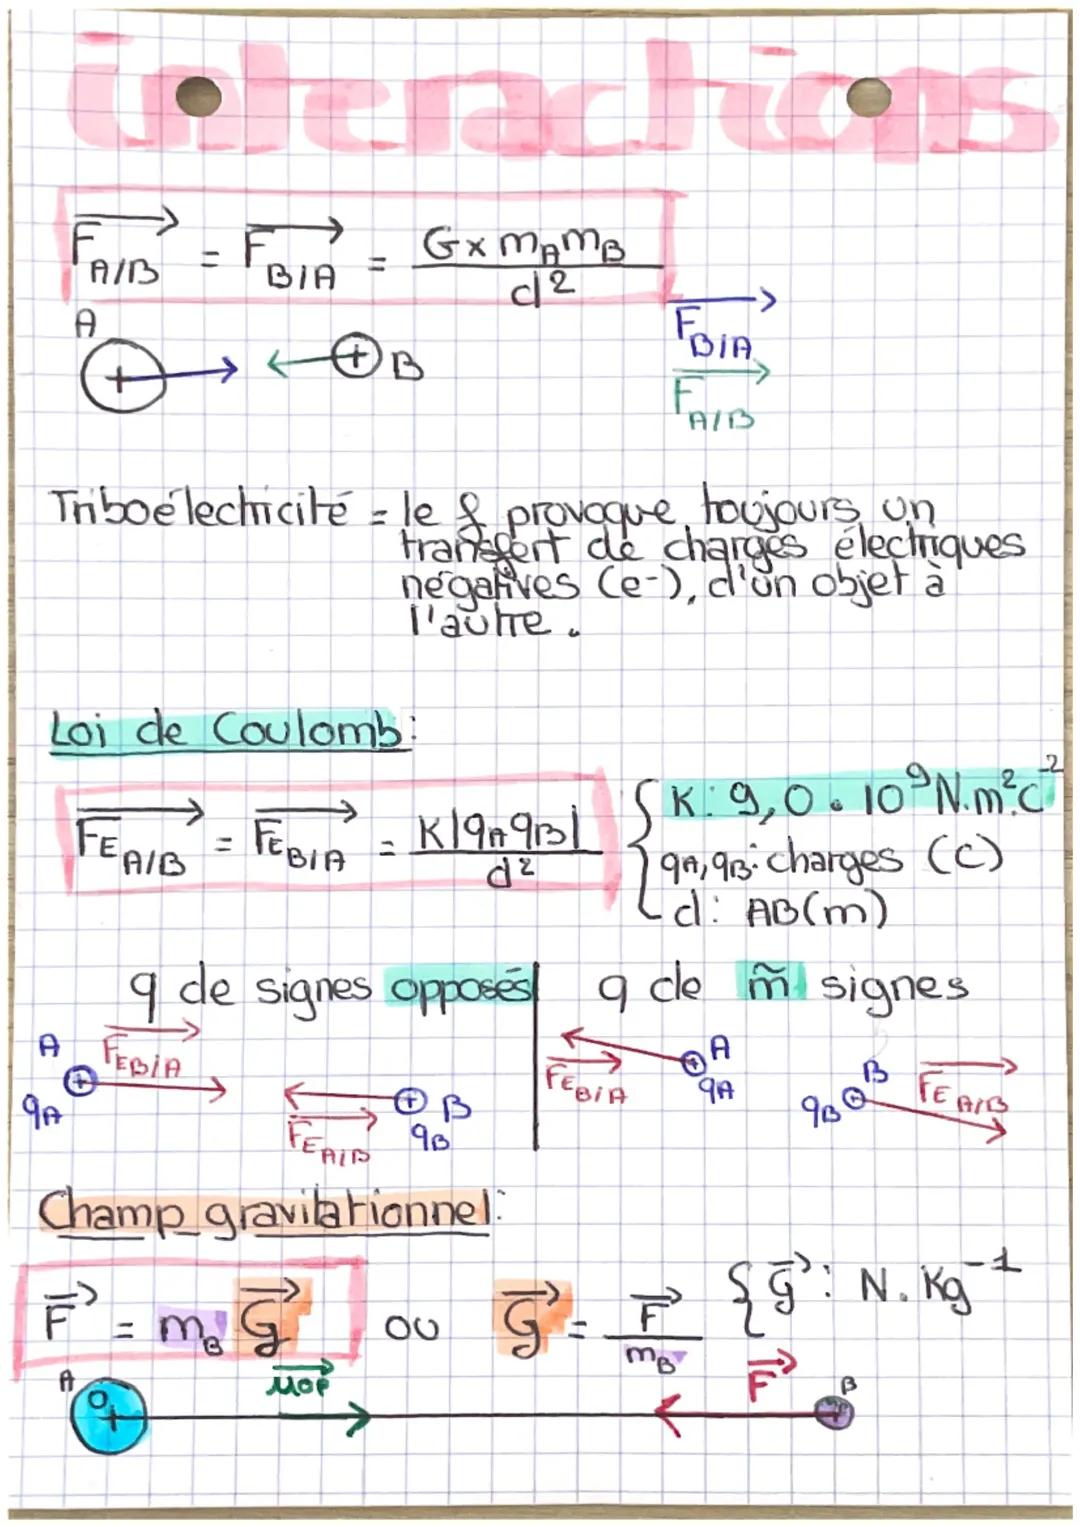 interactions
F A/B = F B/A = G x mA mB / d²
A
B
F B/A
F A/B
Triboélectricité = le f provoque toujours un
transfert de charges électriques
négatives (e-), d'un objet à
l'autre.
Loi de Coulomb:
FE A/B = FE B/A = K|qA qB| / d²
K: 9,0 . 10⁹ N.m².C⁻²
qA, qB: charges (C)
d: AB(m)
q de signes opposés
q de m̃ signes
A
FE B/A
qA
FE A/B
B
qB
FE B/A
A
qA
B
qB
FE A/B
Champ gravitationnel:
F = mB G ou G = F / mB
{ G : N. Kg⁻¹
A
O
μOP
F
B